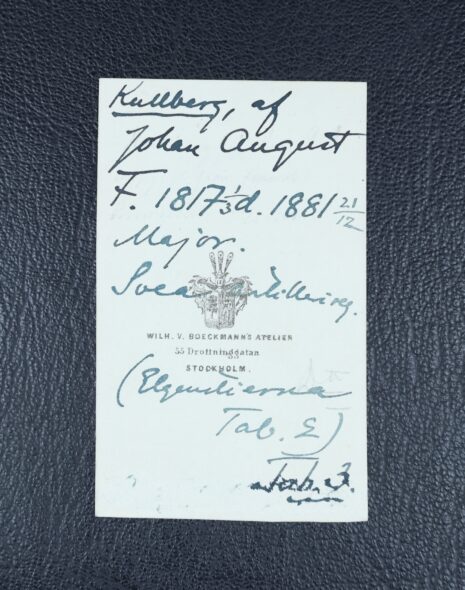 Kullberg, af
Johan August
F. 1817 1/3 d. 1881 21/12
Major.
Svea artillerireg.
WILH. V. BOECKMANN'S ATELIER
55 Drottninggatan
STOCKHOLM.
(Elgenstierna
Tab. 2)
Tab. 3.